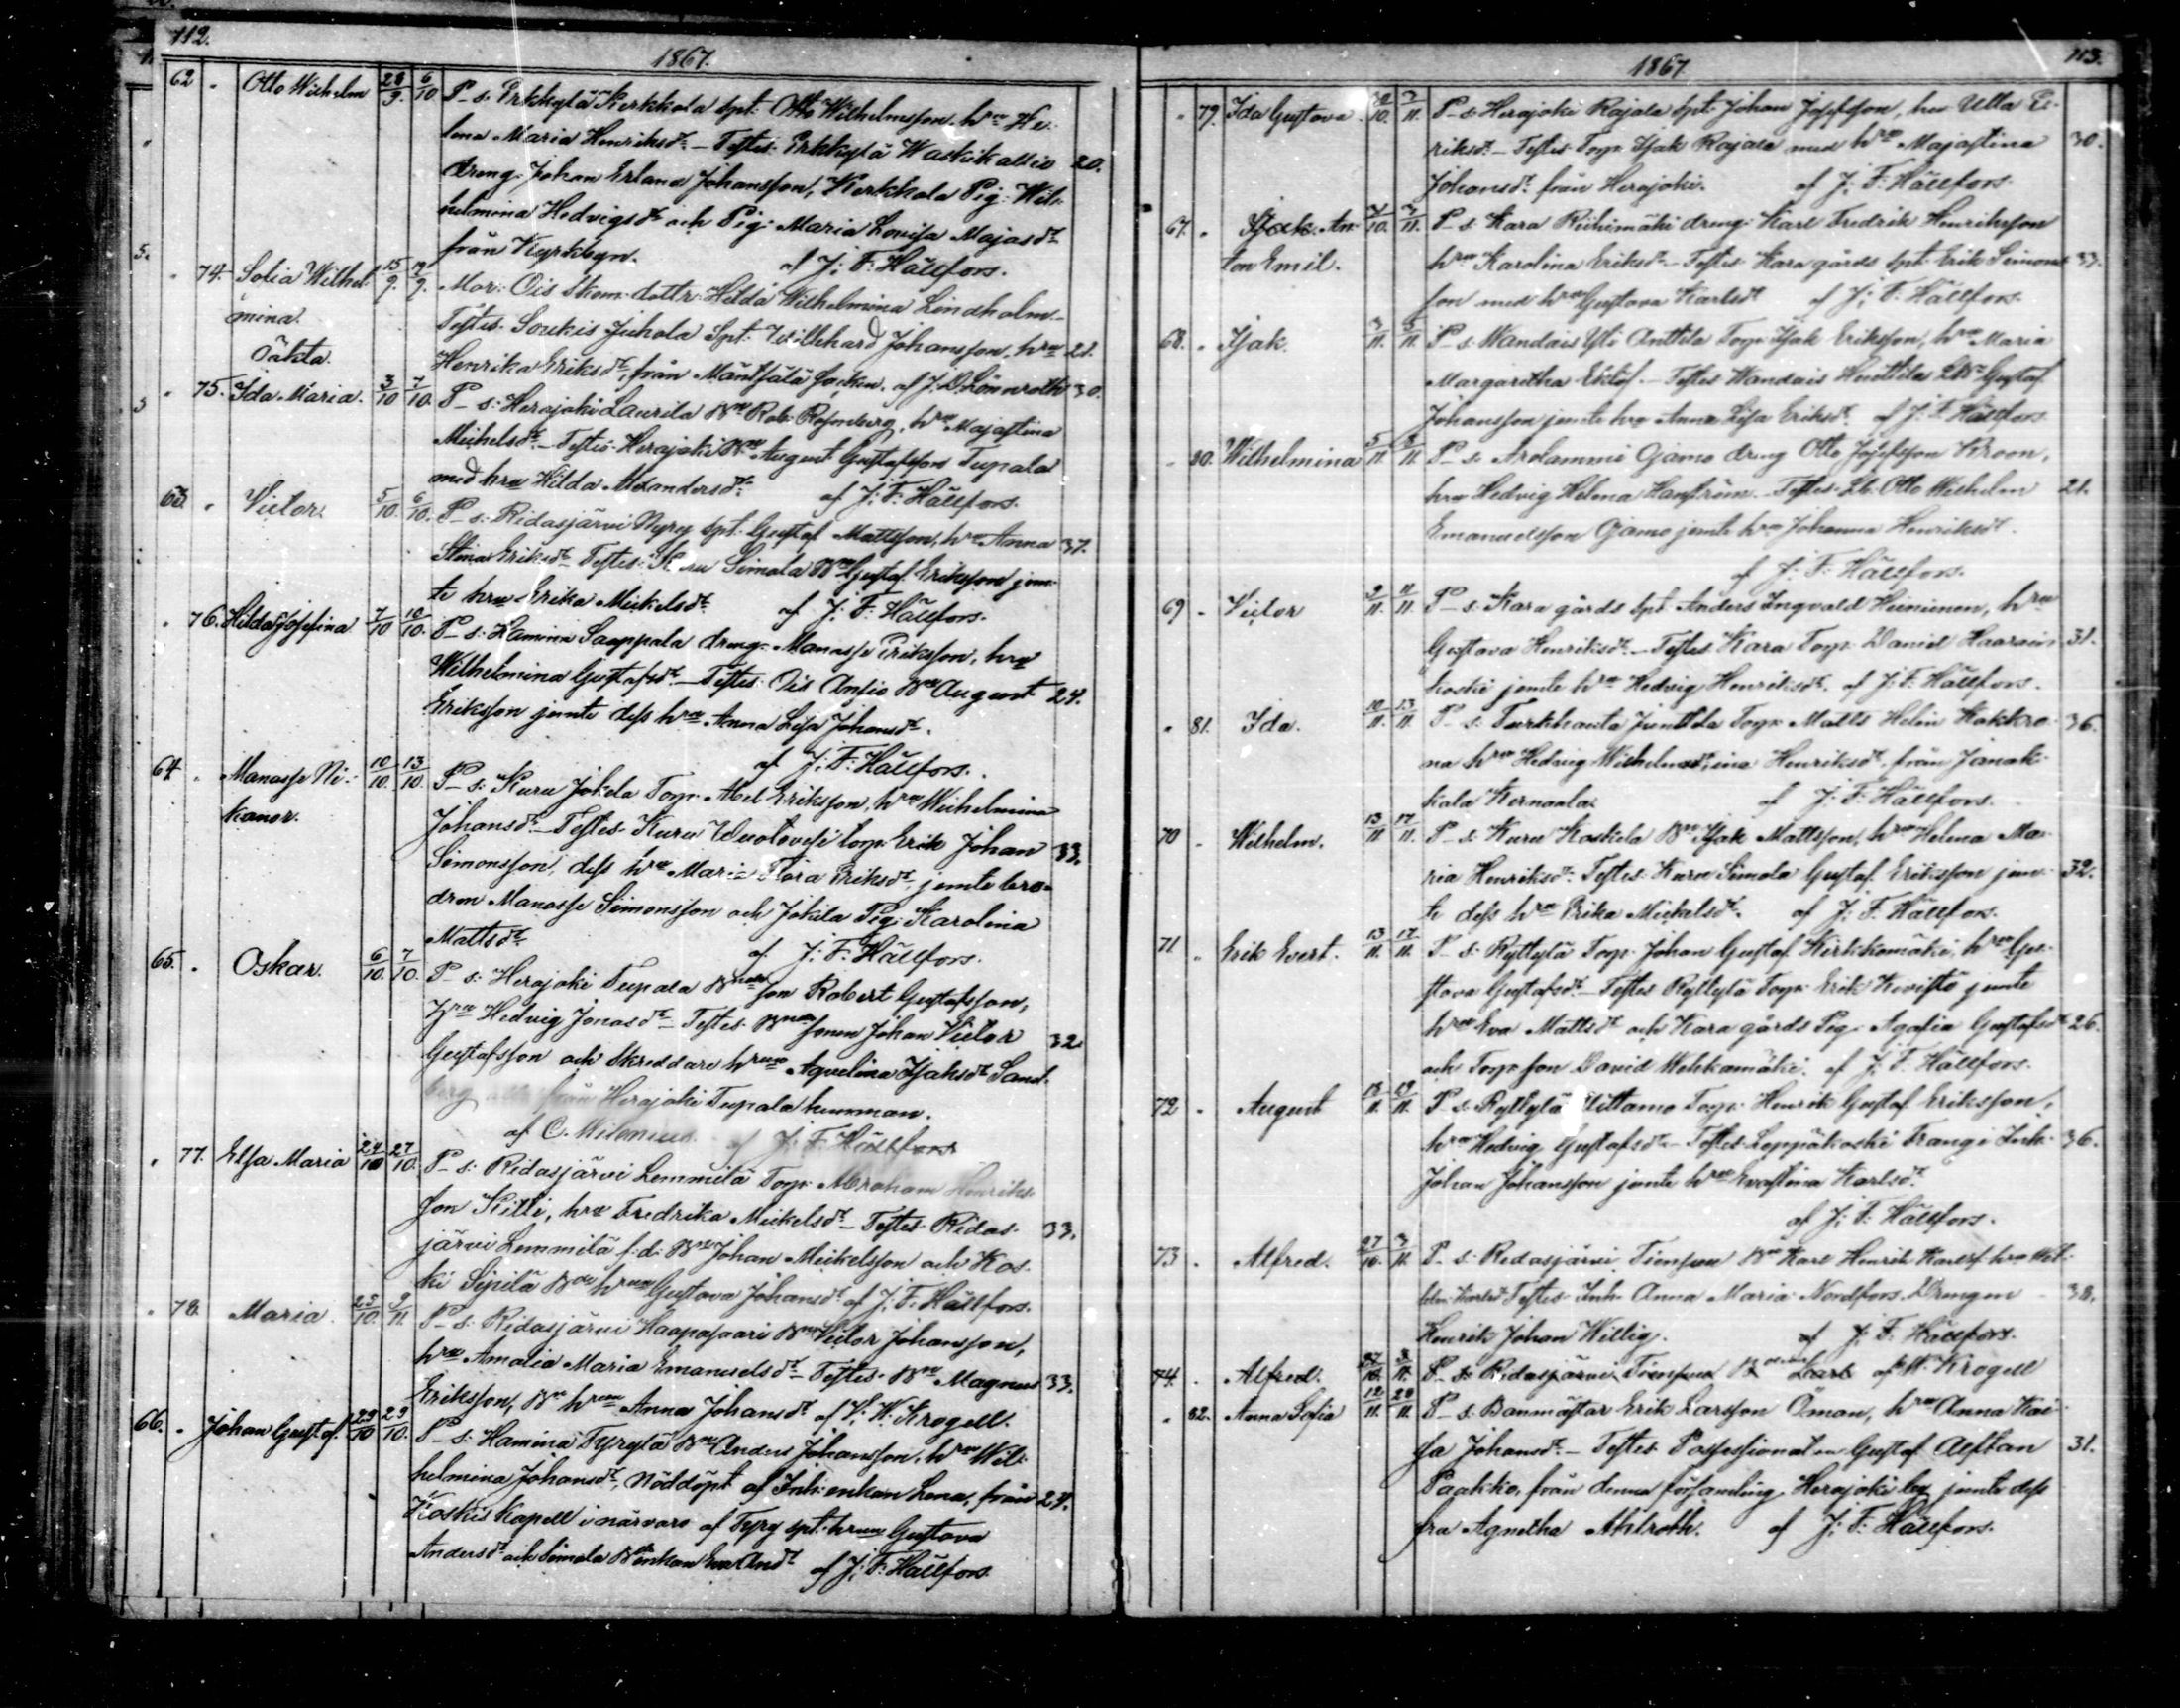 112.
1867.
62 " Otto Wilhelm 28/9. 6/10. P_s: Erkkylä Kerkkola spt. Otto Wilhelmsson, hru He-
lena Maria Henriksdt. – Testes: Erkkylä Waskikallio 20.
dreng. Johan Erland Johansson, Kerkkola Pig. Wil-
helmina Hedvigsdt och Pig: Maria Lovisa Majasdt
från Kyrkbyn. af J: F: Hällfors.
" 74. Sofia Wilhel- 15/9. 19/9. Mor: Ois Skom. dottr. Hilda Wilhelmina Lindholm. –
mina. Testes: Soukis Juhola Spt. Willehard Johansson, hru 21.
Oäkta. Henrika Eriksdt, från Mäntsälä socken. af J. D. Lönnroth 30.
" 75. Ida Maria. 3/10 7/10. P_s: Herajoki Laurila Bn Rob. Rosenberg, hru Majastina
Mickelsdt – Testes: Herajoki Bn August Gustafsson Tupala
med hru Hilda Alexandersdt: af J: F: Hällfors.
63. " Victor. 5/10. 6/10. P_s: Ridasjärvi Nyry spt. Gustaf Mattsson, hru Anna 37.
Stina Eriksdt Testes: Kuru Simola Bn Gustaf Eriksson jem-
te hru Erika Mickelsdt af J: F: Hällfors.
" 76. Hilda Josefina 7/10 10/10. P_s: Hamina Saappala dreng. Manasse Eriksson, hru
Wilhelmina Gustafsdt – Testes: Ois Ansio Bn August 24.
Eriksson jemte dess hru Anna Lisa Johansdt.
af J: F: Hällfors.
64. " Manasse Ni- 10/10. 13/10. P_s: Kuru Jokela Torp. Abel Eriksson, hru Wilhelmina
kanor. Johansdt – Testes: Kuru Wuolovesi torp. Erik Johan 33.
Simonsson, dess hru Maria Flora Eriksdt, jemte bro-
dren Manasse Simonsson och Jokela Pig. Karolina
Mattsdt af J: F: Hällfors.
65. " Oskar. 6/10. 7/10. P_s: Herajoki Tupala Bndeson Robert Gustafsson,
hru Hedvig Jonasdt – Testes: Bndesonen Johan Victor 32.
Gustafsson och Skreddare hrun Aqvelina Isaksdt Sand-
berg från Herajoki Tupala hemman.
af C. Milenius. af J: F: Hällfors
" 77. Elsa Maria 24/10 27/10. P_s: Ridasjärvi Lemmilä Torp. Abraham Henriks-
son Kilti, hru Fredrika Mickelsdt – Testes: Ridas- 33.
järvi Lemmilä f: d: Bn Johan Mickelsson och Kos-
ki Sipilä Bde hrun Gustava Johansdt af J: F: Hällfors.
" 78. Maria. 25/10. 9/11. P_s: Ridasjärvi Haapasaari Bn Victor Johansson,
hru Amalia Maria Emanuelsdt – Testes: Bn Magnus 33.
Eriksson, Bn hrun Anna Johansdt af K. W. Krogell.
66. " Johan Gustaf. 29/10 29/10. P_s: Hamina Tyrylä Bn Anders Johansson, hru Wil-
helmina Johansdt, Nöddöpt af Inh: enkan Lena, från 24.
Koskis Kapell i närvaro af Tyry spt. hrun Gustava
Andersdt och Simola Bdenkan Eva Andt af J: F: Hällfors.
1867
113.
" 79. Ida Gustava. 30/10. 3/11. P_s: Herajoki Rajala Spt. Johan Josefsson, hru Ulla E-
riksdt – Testes: Torp. Isak Rajala med hru Majastina 30.
Johansdt från Herajoki. af J: F: Hällfors.
67. " Isak An- 31/10. 3/11. P_s: Kara Riihimäki dreng. Karl Fredrik Henriksson
ton Emil. hru Karolina Eriksdt – Testes: Kara gårds spt. Erik Simons- 33.
son med hru Gustava Karlsdt af J: F: Hällfors.
68. " Isak. 3/11. 5/11. P_s: Wandais Yli Anttila Torp. Isak Eriksson, hru Maria
Margaretha Eklöf. – Testes: Wandais Huttila Gustaf
Johansson jemte hru Anna Lisa Eriksdt. af J: F: Hällfors.
" 80. Wilhelmina 5/11. 8/11. P_s: Arolammi Ojamo dreng Otto Josefsson Kroon,
hru Hedvig Helena Hagström. – Testes: Otto Wilhelm 21.
Emanuelsson Ojamo jemte hru Johanna Henriksdt.
af J: F: Hällfors.
69 " Victor 9/11. 11/11. P_s: Kara gårds Spt Anders Ingvald Heinonen, hru
Gustava Henriksdt. – Testes: Kara Torp. Daniel Haarain- 31.
koski jemte hru Hedvig Henriksdt. af J: F: Hällfors.
" 81. Ida. 10/11. 13/11. P_s: Turkhauta Junttila Torp. Matts Helin Kokko- 36.
na hru Hedvig Wilhelmina Henriksdt. från Janak-
kala Kernaala. af J: F: Hällfors.
70 " Wilhelm. 13/11 17/11. P_s: Kuru Koskela Bn Isak Mattsson, hru Helena Ma-
ria Henriksdt: Testes: Kuru Simola Gustaf Eriksson jem- 32.
te dess hru Erika Mickelsdt. af J: F: Hällfors.
71 " Erik Evert. 13/11. 17/11. P_s: Ryttylä Torp. Johan Gustaf Kirkkomäki, hru Gu-
stava Gustafsdt – Testes: Ryttylä Torp. Erik Kivistö jemte
hru Eva Mattsdt och Kara gårds Pig. Agasia Gustafsdt 26.
och Torp. son David Mehkamäki. af J: F: Hällfors.
72 " August 18/11. 19/11. P_s: Ryttylä Uittamo Torp. Henrik Gustaf Eriksson,
hru Hedvig Gustafsdt – Testes: Leppäkoski Frangi Inh: 36.
Johan Johansson jemte hru Evastina Karlsdt.
af J: F: Hällfors.
73 " Alfred. 27/10. 3/11. P_s: Ridasjärvi Bn Karl Henrik Karlss. hru Wil-
helm. Karlsdt Testes: Inh. Anna Maria Nordfors. Drengen 38.
Henrik Johan Willig. af J: F: Hällfors.
74. " Alfred. 27/10. 3/11. P_s: Ridasjärvi af W. Krogell
" 82. Anna Sofia 12/11. 20/11. P_s: Banmästar Erik Larsson Öman, hru Anna Kai-
sa Johansdt. – Testes: Possessionaten Gustaf Alftan 31.
Paakko, från denna församling Herajoki by jemte dess
fru Agnetha Ahlroth. af J: F: Hällfors.